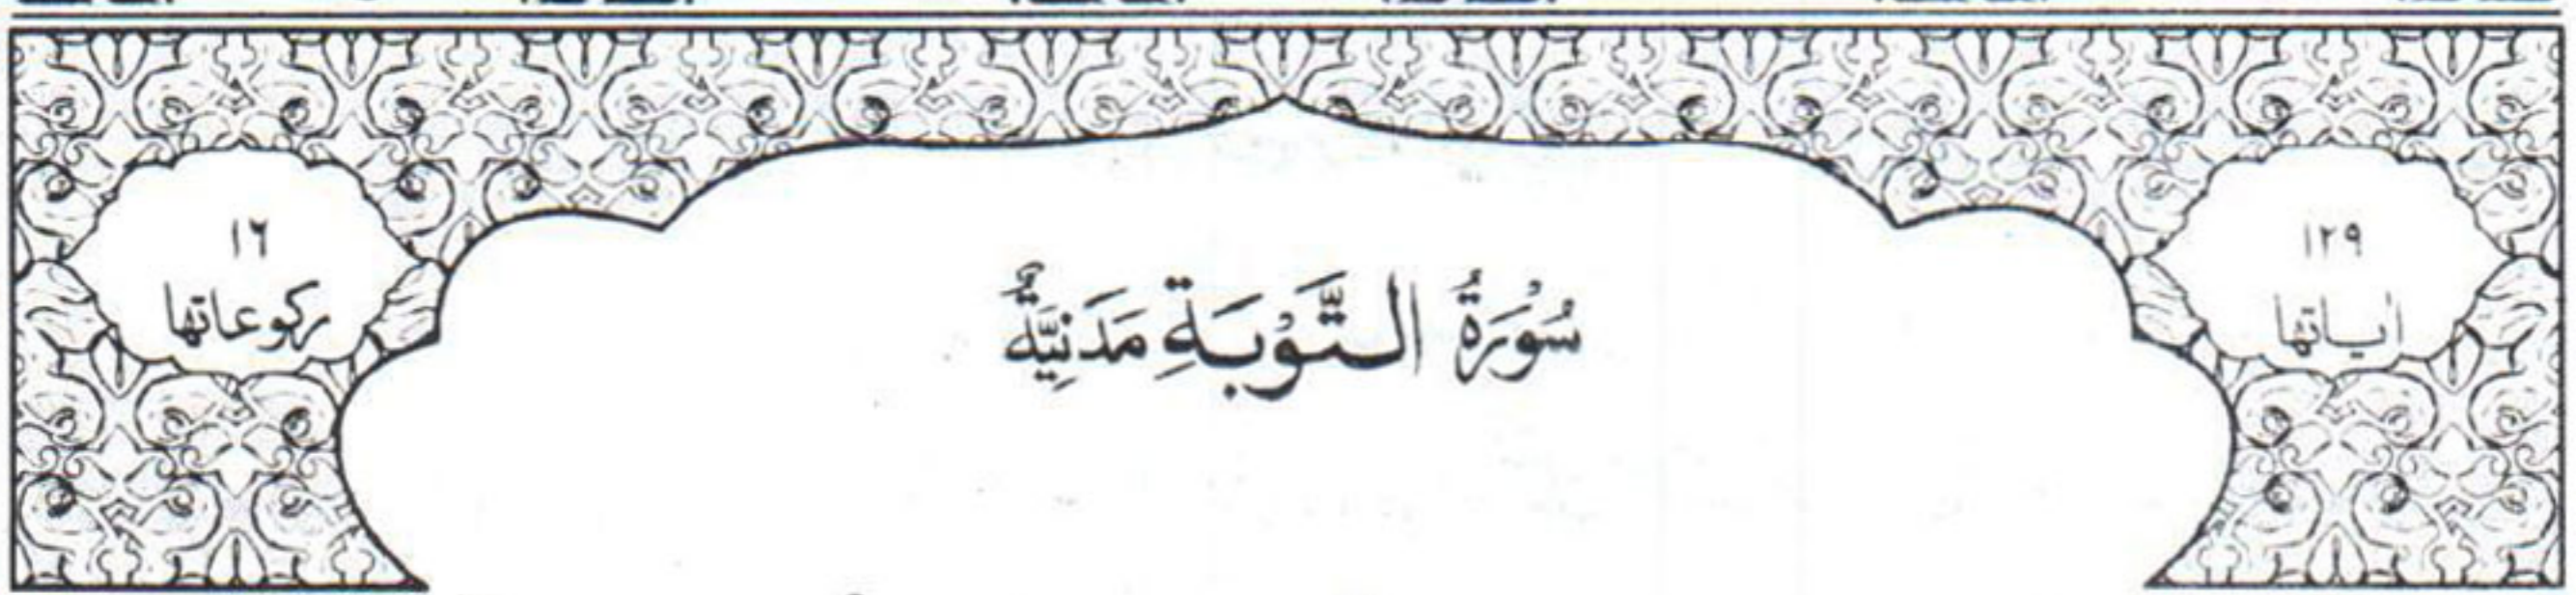 ١٢٩
اٰياتها
سُوْرَةُ التَّوْبَةِ مَدَنِيَّةٌ
١٦
ركوعاتها